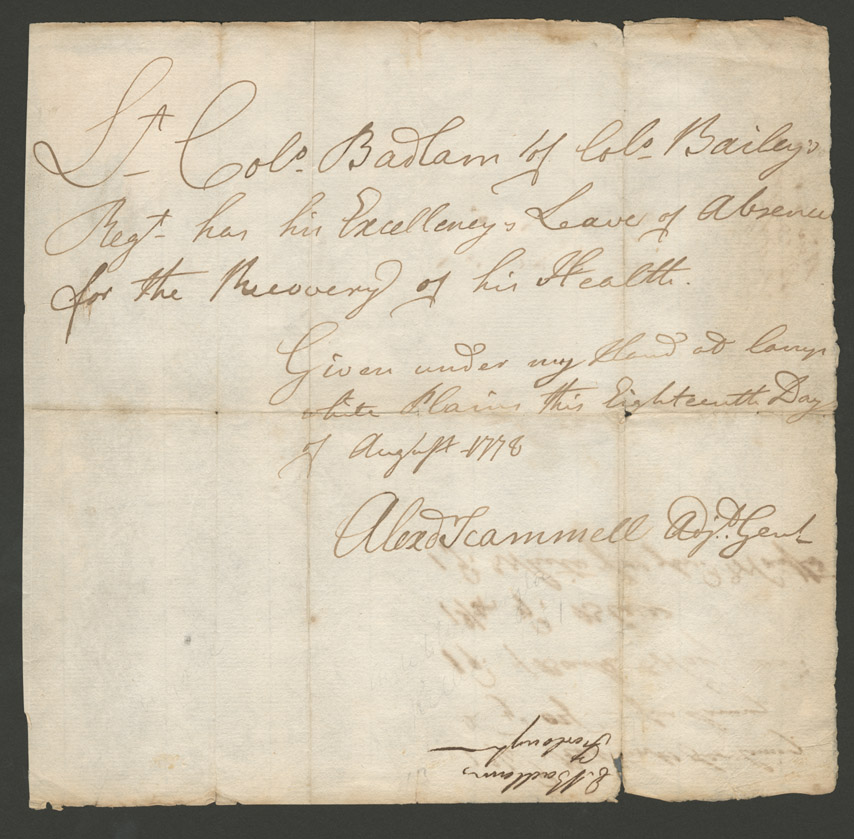 Lt Colo. Badlam of Colo. Bailey's
Regt. has his Excellency's Leave of Absence
for the Recovery of his Health.
Given under my Hand at Camp
white Plains this Eighteenth Day
of August 1778
Alexdr Scammell Adjt. Genl
Badlams
Furlough